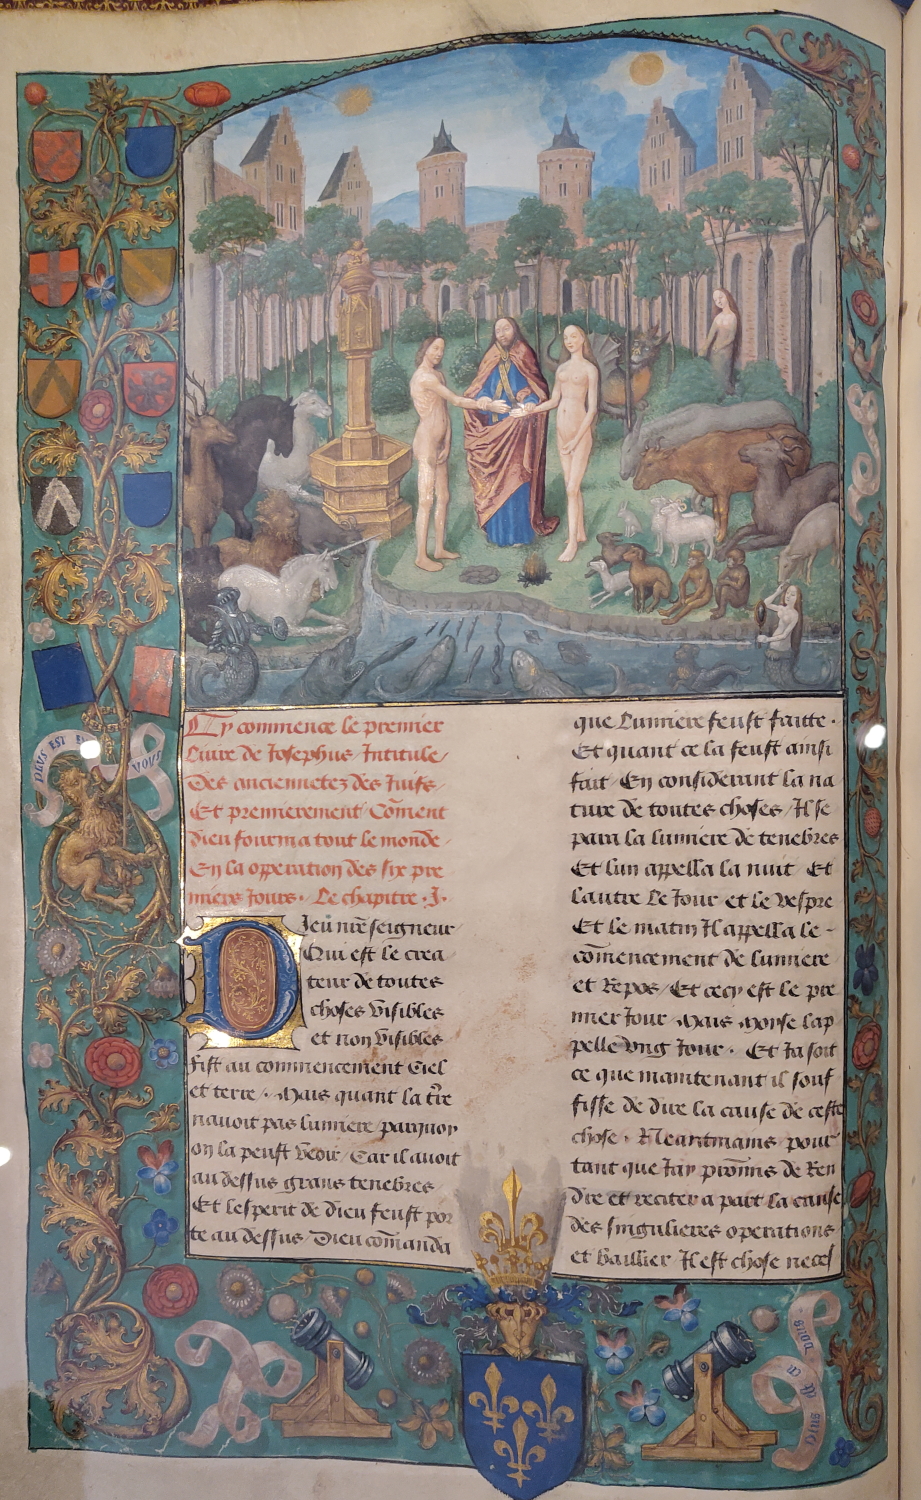 Cy commence le premier
Livre de Josephus Intitule
Des anciennetez des Juifs
Et premierement Cōment
dieu fourma tout le monde
En la opperation des six pre
miers Jours. Le chapitre .J.
Dieu nr̄e seigneur
Qui est le crea
teur de toutes
choses visibles
et non visibles
fist au commencement Ciel
et terre . Mais quant la tr̄e
navoit pas lumiere parquoy
on la peust veoir / Car il avoit
au dessus grans tenebres
Et lesperit de Dieu feust por
te au dessus Dieu cōmanda
que Lumiere feust faitte .
Et quant ce la feust ainsi
fait / En considerant la na
ture de toutes choses / Il se
para la lumiere de tenebres
Et lun appella la nuit Et
lautre Le Jour et le vespre
Et le matin Il appella le
cōmencement de lumiere
et Repos / Et cecy est le pre
mier Jour . Mais Moyse lap
pelle ung Jour . Et Ja soit
ce que maintenant il souf
fisse de dire la cause de ceste
chose . Neantmains pour
tant que Jay prōmis de Ren
dre et reciter a part la cause
des singulieres operations
et baillier Il est chose neces
PLVS EST EN
VOVS